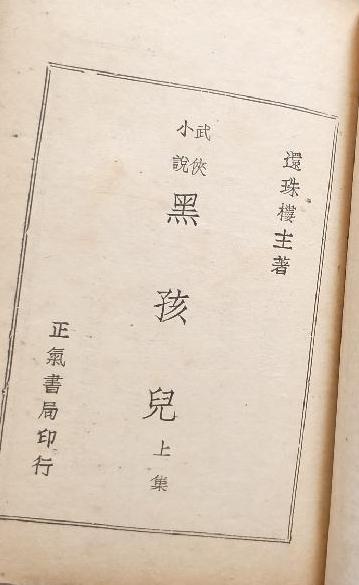 還珠樓主著
武俠
小說
黑孩兒
上集
正氣書局印行